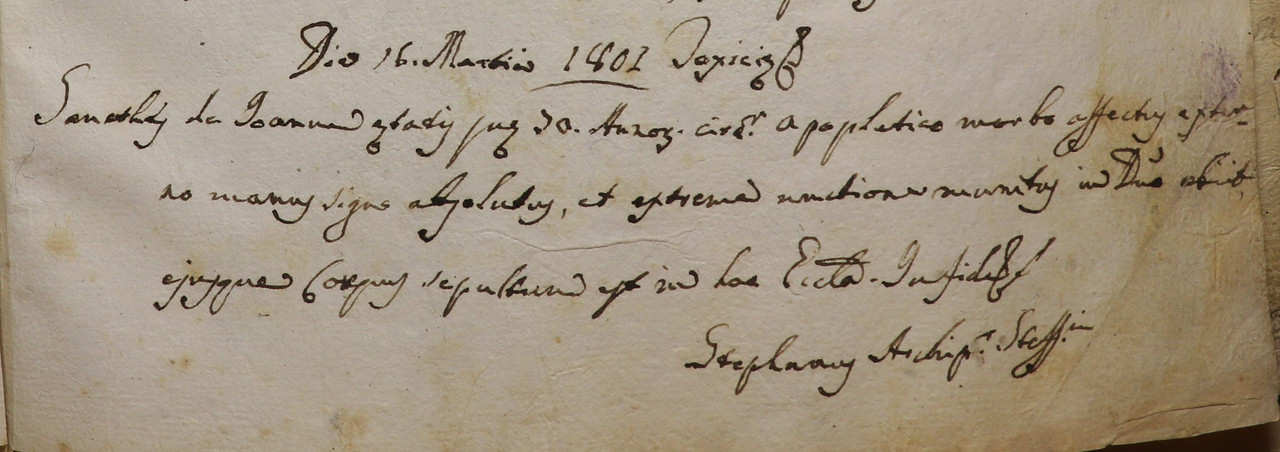 Die 16. Martii 1801
da Joanne ætatis suæ 30. Annoꝝ. circ.r apopletico morbo affectus exter-
no manus signo absolutus, et extrema unctione munitus in Dno obiit
ejusque Corpus sepultum est in hac Eccla. In fidem
Stephanus Archipr. Steff.in